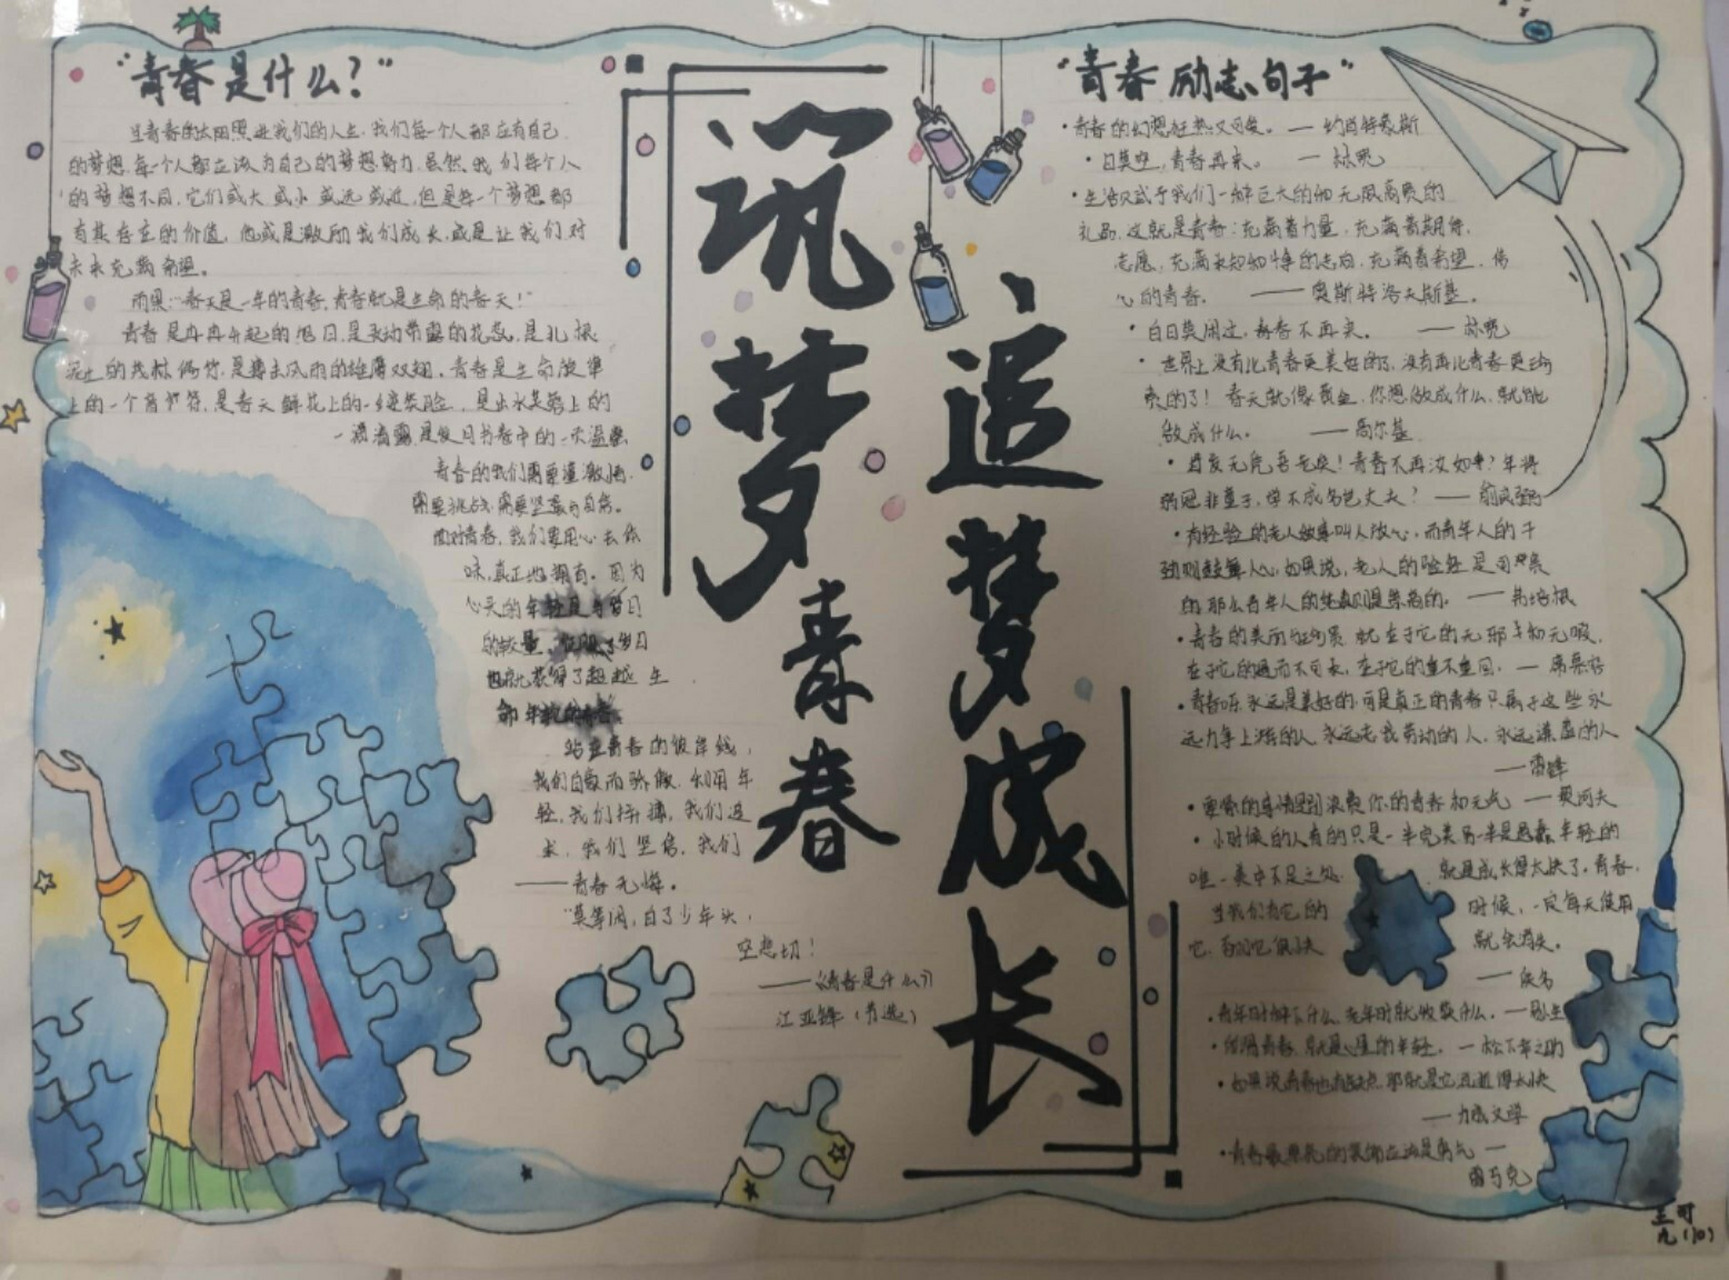 "青春是什么？"
当青春的太阳照进我们的人生，我们每一个人都应有自己
的梦想，每一个人都应该为自己的梦想努力，虽然，我们每个人
的梦想不同，它们或大或小或远或近，但是每一个梦想都
有其存在的价值，他或是激励我们成长，或是让我们对
未来充满希望。
雨果："春天是一年的青春，青春就是生命的春天！"
青春是冉冉升起的旭日，是灵动带露的花蕊，是扎根
泥土的 是搏击风雨的雄鹰双翅，青春是生命旋律
上的一个音节符，是春天鲜花上的一 笑脸，是出水芙蓉上的
一滴清露，是夏日书卷中的一 温馨
青春的我们需要灌
需要挑战，需要坚强与自信。
面对青春，我们要用心去体
味，真正地拥有。因为
心灵的年轻是 岁月
的较量，征服了岁月
也就获得了超越生
命年轻的青春
站在青春的彼岸线，
我们自豪而骄傲，利用年
轻，我们拼搏，我们追
求，我们坚信，我们
——青春无悔。
"莫等闲，白了少年头，
空悲切！
——《青春是什么？》
江亚锋（节选）
筑梦青春
追梦成长
"青春励志句子"
·青春的幻想既狂热又可爱。——约肖特豪斯
·日莫空，青春再来。——林宽
·生活赋予我们一种巨大的和无限高贵的
礼品，这就是青春：充满着力量，充满着期待，
志愿，充满求知和斗争的志向，充满着希望，信
心的青春。——奥斯特洛夫斯基。
·白日莫闲过，青春不再来。——林宽
·世界上没有比青春更美好的了，没有再比青春更珍
贵的了！春天就像黄金，你想做成什么，就能
做成什么。——高尔基
·青春不再汝知乎？年将
弱冠非童子，学不成名岂丈夫？——俞良弼
·有经验的老人做事叫人放心，而青年人的干
劲则鼓舞人心，如果说，老人的经验是可贵
的，那么青年人的 则是崇高的。——弗·培根
·青春的美丽与珍贵，就在于它的无邪与无瑕，
在于它的遇而不可长，在于它的重不重回。——席慕容
·青春啊，永远是美好的，可是真正的青春，只属于这些永
远力争上游的人，永远忘我劳动的人，永远谦虚的人
——雷锋
·要紧的事情是别浪费你的青春和元气——契诃夫
·小时候的人看的只是一半完美，另一半是愚蠢，年轻的
唯一美中不足之处 就是成长得太快了，青春，
当我们有它的 时候，一定每天使用
它，否则它很快 就会消失。
——佚名
·青年时种下什么，老年时就收获什么。——易卜生
·所谓青春，就是心理的年轻。——松下幸之助
·如果说青春也有缺点，那就是它消逝得太快
——
·青春最 的装饰应该是勇气——
雷马克
九(10)